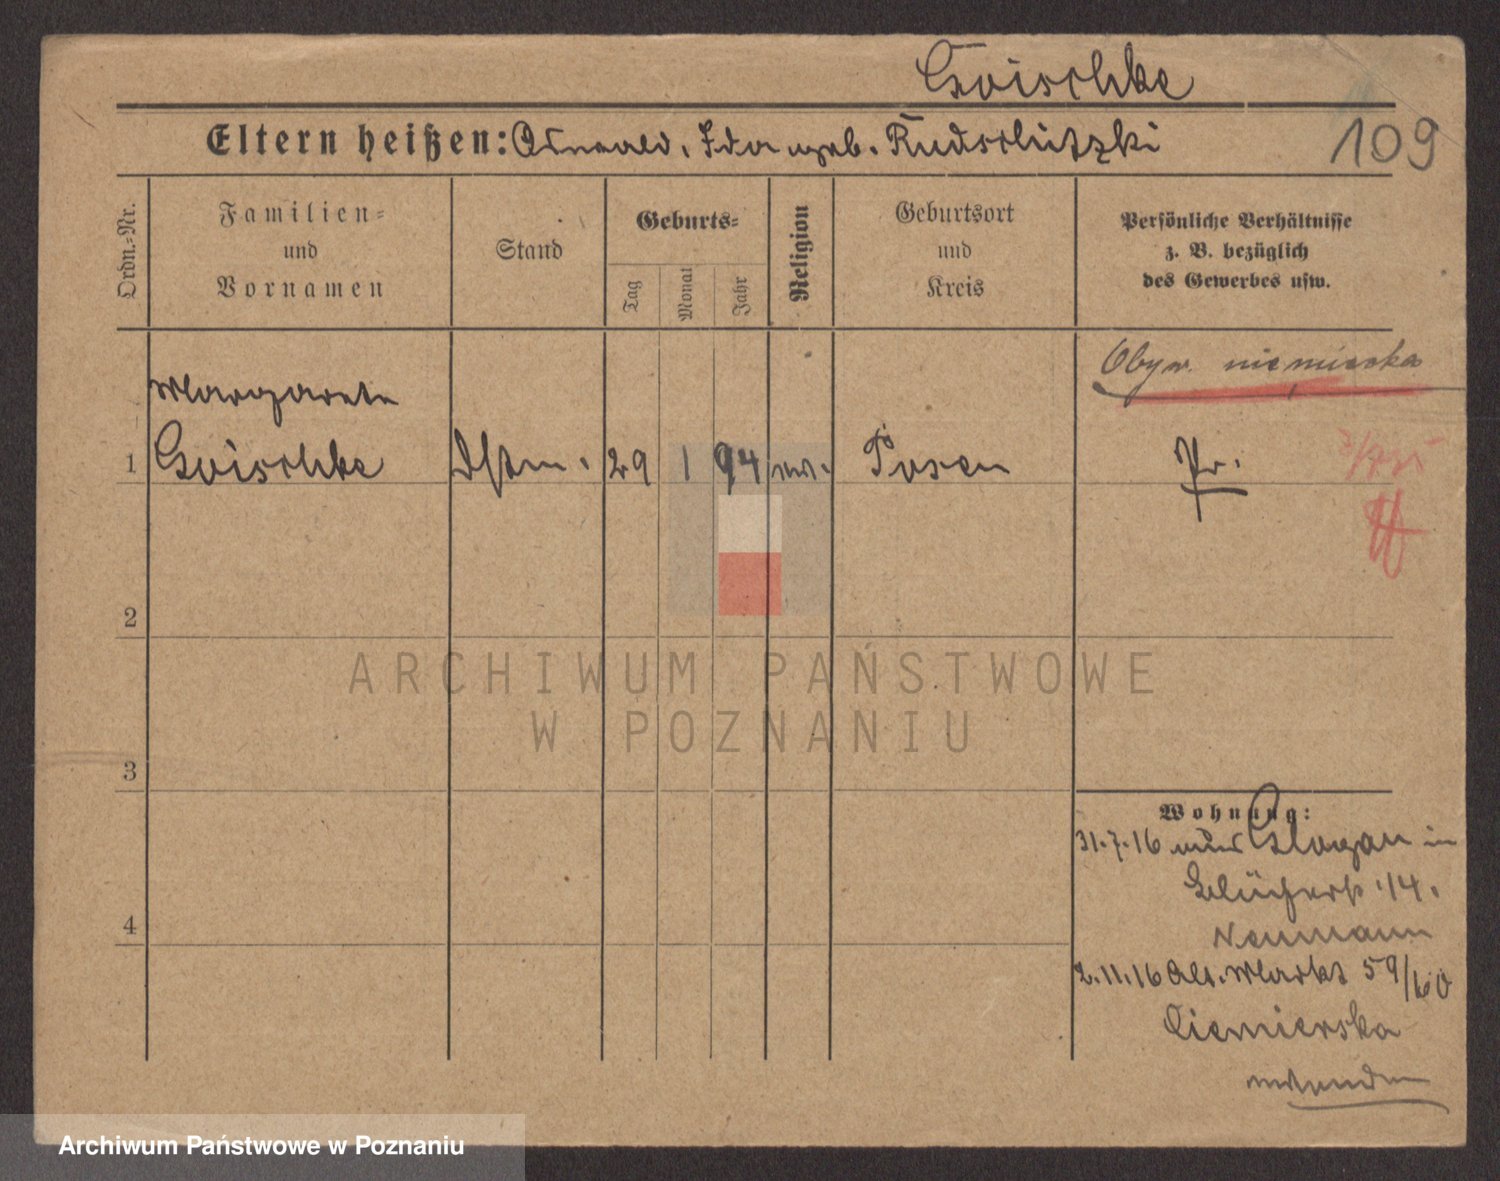 Goischke
Eltern heißen: Oswald, Ida geb. Rudschützki
109
Ordn.-Nr.
Familien-
und
Vornamen
Stand
Geburts-
Tag
Monat
Jahr
Religion
Geburtsort
und
Kreis
Persönliche Verhältnisse
z. B. bezüglich
des Gewerbes usw.
Obyw. niemiecka
Margarete
1 Goischke 29 1 94 Posen Pr.
2
ARCHIWUM PAŃSTWOWE
W POZNANIU
3
Wohnung:
31.7.16 Glogau in
14.
4
Neumann
2.11.16 Alt. Markt 59/60
Ciemierska
Archiwum Państwowe w Poznaniu